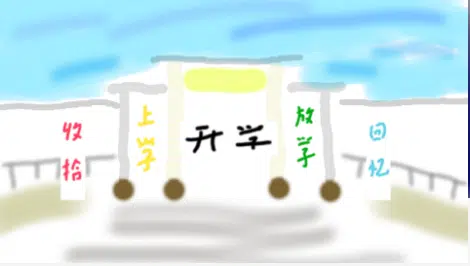 收拾
上学
开学
放学
回忆